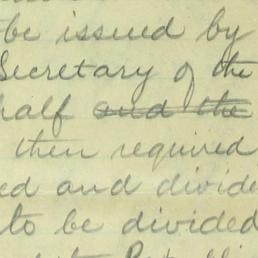 be issued by
Secretary of the
half and the
then required
ed and divide
to be divided